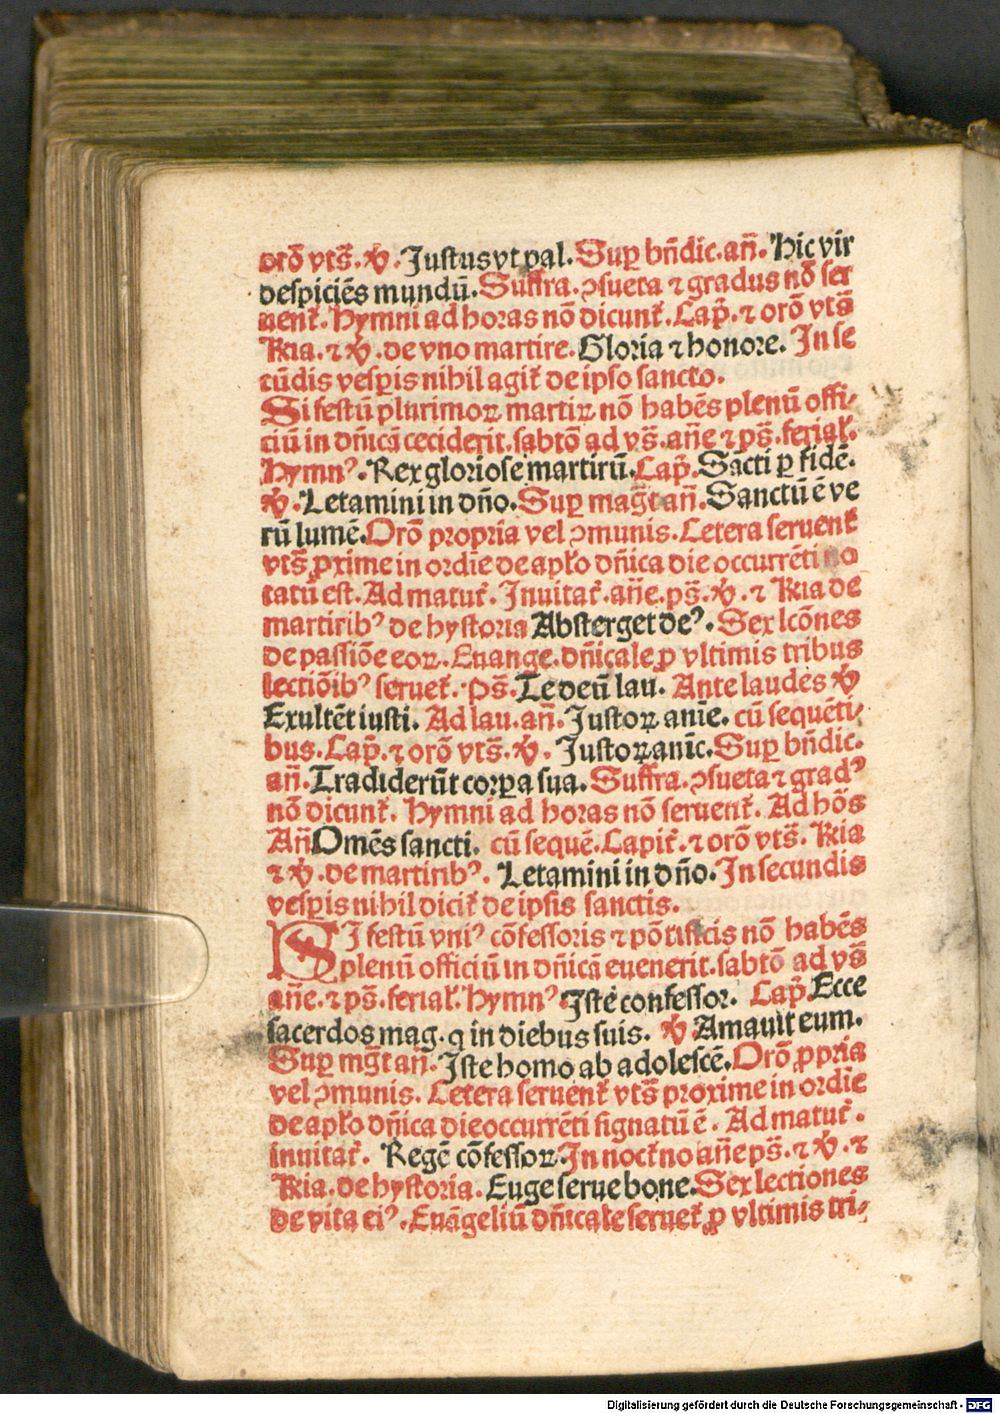 orō vts̄. ℣. Justus vt pal. Suꝑ bn̄dic. an̄. Hic vir
despiciēs mundū. Suffra. ɔsueta ⁊ gradus nō ser
uent᷑. Hymni ad horas nō dicunt᷑. Cap̄. ⁊ orō vts̄
R̄ria. ⁊ ℣. de vno martire. Gloria ⁊ honore. In se
cūdis vesꝑis nihil agit᷑ de ipso sancto.
Si festū plurimoꝝ martiꝝ nō habēs plenū offi-
ciū in dn̄icā ceciderit. sabtō ad vs̄. an̄e ⁊ ps̄. ferial᷑.
Hymnꝰ. Rex gloriose martirū. Cap̄. Sācti ꝑ fidē.
℣. Letamini in dn̄o. Suꝑ mag̅t an̄. Sanctū ē ve
rū lumē. Orō propria vel ɔmunis. Cetera seruent᷑
vts̄ ꝓxime in ordīe de apl̄o dn̄ica die occurrēti no
tatū est. Ad matut᷑. Inuitat᷑. an̄e. ps̄. ℣. ⁊ R̄ria de
martiribꝰ de hystoria Absterget deꝰ. Sex lcōnes
de passiōe eoꝝ. Euange. dn̄icale ꝓ vltimis tribus
lectiōibꝰ seruet᷑. ps̄. Te deū lau. Ante laudes ℣
Exultēt iusti. Ad lau. an̄. Justoꝝ anīe. cū sequēti-
bus. Cap̄. ⁊ orō vts̄. ℣. Justoꝝ anīe. Suꝑ bn̄dic.
an̄. Tradiderūt corꝑa sua. Suffra. ɔsueta ⁊ gradꝰ
nō dicunt᷑. Hymni ad horas nō seruent᷑. Ad hōs
An̄ Omēs sancti. cū sequē. Capit᷑. ⁊ orō vts̄. R̄ria
⁊ ℣. de martiribꝰ. Letamini in dn̄o. In secundis
vesꝑis nihil dicit᷑ de ipsis sanctis.
SI festū vniꝰ cōfessoris ⁊ pōtificis nō habēs
plenū officiū in dn̄icā euenerit. sabtō ad vs̄
an̄e. ⁊ ps̄. ferial᷑. Hymnꝰ Iste confessor. Cap̄. Ecce
sacerdos mag. q in diebus suis. ℣ Amauit eum.
Suꝑ mg̅t an̄. Iste homo ab adolescē. Orō ꝓpria
vel ɔmunis. Cetera seruent᷑ vts̄ proxime in ordīe
de apl̄o dn̄ica die occurrēti signatū ē. Ad matut᷑.
inuitat᷑. Regē cōfessoꝝ. In noct᷑no an̄e ps̄. ⁊ ℣. ⁊
R̄ria. de hystoria. Euge serue bone. Sex lectiones
de vita eiꝰ. Euāgeliū dn̄icale seruet᷑ ꝓ vltimis tri-
Digitalisierung gefördert durch die Deutsche Forschungsgemeinschaft - DFG